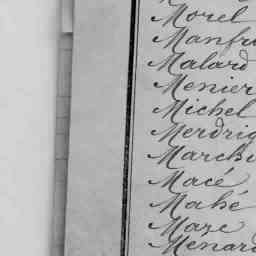 Morel
Manfr
Malard
Menier
Michel
Merdrig
March
Macé
Mahé
Maze
Menard